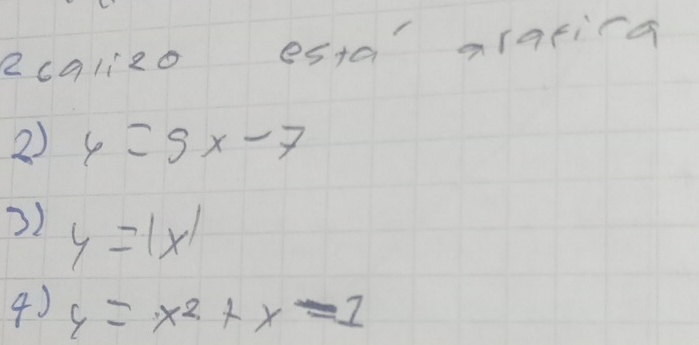 2calizo está grafica
2) y = 9x - 7
3) y = |x|
4) y = x² + x - 1